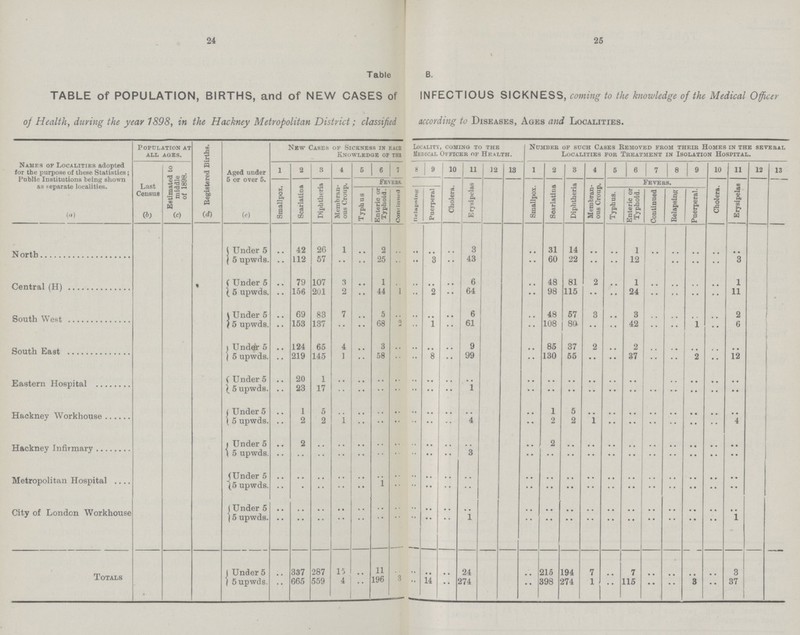 24
25
Table B.
TABLE of POPULATION, BIRTHS, and of NEW CASES of INFECTIOUS SICKNESS, coming to the knowledge of the Medical Officer
of Health, during the year 1898, in the Hackney Metropolitan District; classified according to DISEASES, AGES and LOCALITIES.
NAMES OF LOCALITIES adopted for the purpose of these Statistics; Public Institutions being shown as separate localities.
POPULATION AT ALL AGES.
Registered Births.
Aged under 5 or over 5.
NEW CASES OF SICKNESS IN EACH LOCALITY, COMING TO THE KNOWLEDGE OF THE MEDICAL OFFICER OF HEALTH.
NUMBER OF SUCH CASES REMOVED FROM THEIR HOMES IN THE SEVERAL LOCALITIES FOR TREATMENT IN ISOLATION HOSPITAL.
Last Census
Estimated to middle of 1898.
1 2 3 4 5 6 7 8 9 10 11 12 13 1 2 3 4 5 6 7 8 9 10 11 12 13
FEVERS. FEVERS.
Smallpox. Scarlatina Diphtheria Membranous Croup. Typhus Enteric or Typhoid. Continued Relapsing Puerperal Cholera. Erysipelas
Smallpox. Scarlatina Diphtheria Membranous Croup. Typhus. Enteric or Typhoid. Continued Relapsing Puerperal. Cholera. Erysipelas
(a) (b) (c) (d) (e)
North Under 5 .. 42 26 1 .. 2 .. .. .. .. 3 .. 31 14 .. .. 1 .. .. .. .. ..
5 upwds. .. 112 57 .. .. 25 .. .. 3 .. 43 .. 60 22 .. .. 12 .. .. .. 3
Central (H) Under 5 .. 79 107 3 .. 1 .. .. .. .. 6 .. 48 81 2 .. 1 .. .. .. .. 1
5 upwds. .. 156 201 2 .. 44 1 .. 2 .. 64 .. 98 115 .. .. 24 .. .. .. .. 11
South West Under 5 .. 69 83 7 .. 5 .. .. .. .. 6 .. 48 57 3 .. 3 .. .. .. .. 2
5 upwds. .. 153 137 .. .. 68 2 .. 1 .. 61 .. 108 80 .. .. 42 .. .. 1 .. 6
South East Under 5 .. 124 65 4 .. 3 .. .. .. .. 9 .. 85 37 2 .. 2 .. .. .. .. ..
5 upwds. .. 219 145 1 .. 58 .. .. 8 .. 99 .. 130 55 .. .. 37 .. .. 2 .. 12
Eastern Hospital Under 5 .. 20 1 .. .. .. .. .. .. .. .. .. .. .. .. .. .. .. .. .. ..
5 upwds. .. 23 17 .. .. .. .. .. .. .. 1 .. .. .. .. .. .. .. .. .. .. ..
Hackney Workhouse Under 5 .. 1 5 .. .. .. .. .. .. .. .. .. 1 5 .. .. .. .. .. .. .. ..
5 upwds. .. 2 2 1 .. .. .. .. .. .. 4 .. 2 2 1 .. .. .. .. .. .. 4
Hackney Infirmary Under 5 .. 2 .. .. .. .. .. .. .. .. .. .. 2 .. .. .. .. .. .. .. .. ..
5 upwds. .. .. .. .. .. .. .. .. .. .. 3 .. .. .. .. .. .. .. .. .. .. ..
Metropolitan Hospital Under 5 .. .. .. .. .. .. .. .. .. .. .. .. .. .. .. .. .. .. .. .. .. ..
5 upwds. .. .. .. .. .. 1 .. .. .. .. .. .. .. .. .. .. .. .. .. .. .. ..
City of London Workhouse Under 5 .. .. .. .. .. .. .. .. .. .. .. .. .. .. .. .. .. .. .. .. .. ..
5 upwds. .. .. .. .. .. .. .. .. .. .. 1 .. .. .. .. .. .. .. .. .. .. 1
TOTALS Under 5 .. 337 287 15 .. 11 .. .. .. .. 24 .. 215 194 7 .. 7 .. .. .. .. 3
5 upwds. .. 665 559 4 .. 196 3 .. 14 .. 274 .. 398 274 1 .. 115 .. .. 3 .. 37